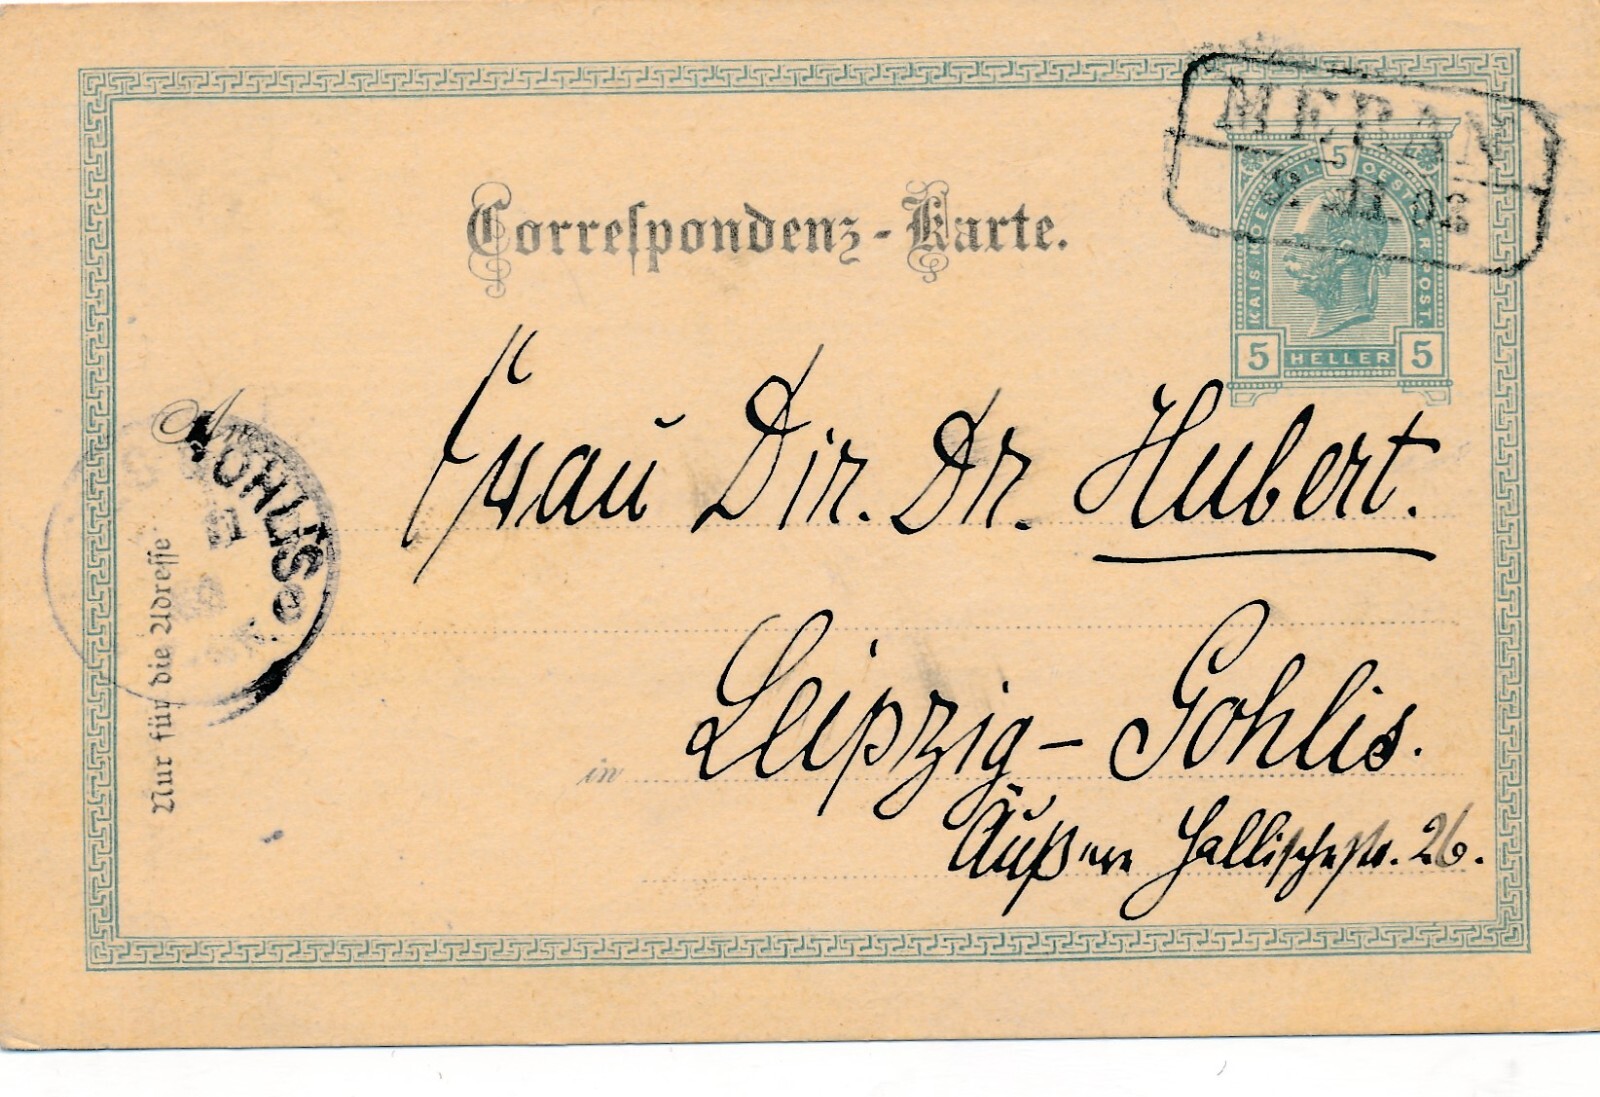 MERAN
5
KAIS. KOENIGL. OESTERR. POST.
5 HELLER 5
Correspondenz-Karte.
An
GOHLIS
Frau Dir. Dr. Hubert.
in Leipzig-Gohlis.
Äußere Hallischestr. 26.
Nur für die Adresse